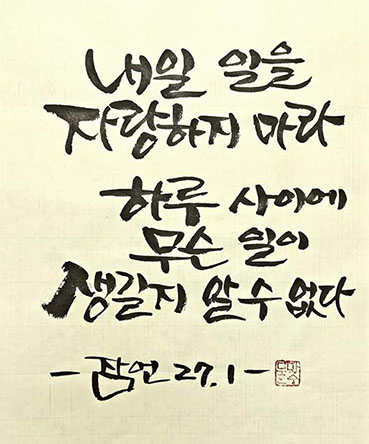 내일 일을
자랑하지 마라
하루 사이에
무슨 일이
생길지 알 수 없다
- 잠언 27.1 -